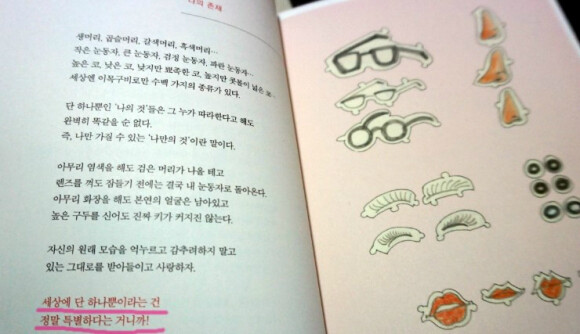 나의 존재
생머리, 곱슬머리, 갈색머리, 흑색머리…
작은 눈동자, 큰 눈동자, 검정 눈동자, 파란 눈동자…
높은 코, 낮은 코, 낮지만 뾰족한 코, 높지만 콧볼이 넓은 코…
세상엔 이목구비로만 수백 가지의 종류가 있다.
단 하나뿐인 ‘나의 것’들은 그 누가 따라한다고 해도
완벽히 똑같을 순 없다.
즉, 나만 가질 수 있는 ‘나만의 것’이란 말이다.
아무리 염색을 해도 검은 머리가 나올 테고
렌즈를 껴도 잠들기 전에는 결국 내 눈동자로 돌아온다.
아무리 화장을 해도 본연의 얼굴은 남아있고
높은 구두를 신어도 진짜 키가 커지진 않는다.
자신의 원래 모습을 억누르고 감추려하지 말고
있는 그대로를 받아들이고 사랑하자.
세상에 단 하나뿐이라는 건
정말 특별하다는 거니까!